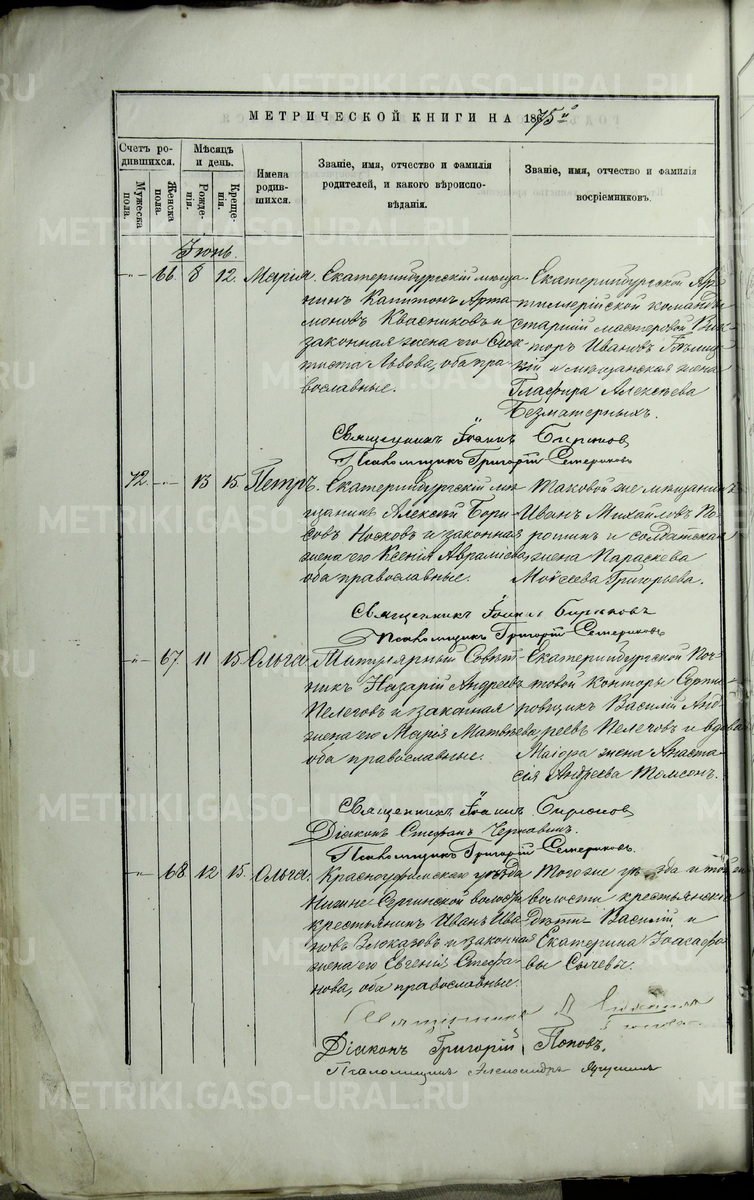 МЕТРИЧЕСКОЙ КНИГИ НА 1875 й
Счетъ родившихся.
Мужеска пола.
Женска пола.
Мѣсяцъ и день.
Рожденія.
Крещенія.
Имена родившихся.
Званіе, имя, отчество и фамилія родителей, и какого вѣроисповѣданія.
Званіе, имя, отчество и фамилія восріемниковъ.
Іюнь.
66. 8 12. Марія.
Екатеринбургскій мѣща-
нинъ Капитонъ Арта-
моновъ Квасниковъ и
законная жена его
Львова, оба пра-
вославные.
Екатеринбургской Ар-
тиллерійской команды
старшій мастеровой Вик-
торъ Ивановъ
и мѣщанская жена
Глафира Алексѣева
Безматерныхъ.
Священникъ Іоаннъ Бирюковъ
Псаломщикъ Григорій Семериковъ
72. 13 15 Петръ.
Екатеринбургскій мѣ-
щанинъ Алексѣй Бори-
совъ Носковъ и законная
жена его Ксенія Аврамова,
оба православные.
Таковой же мѣщанинъ
Иванъ Михайловъ По-
рошинъ и солдатская
жена Параскева
Моѵсеева Григорьева.
Священникъ Іоаннъ Бирюковъ
Псаломщикъ Григорій Семериковъ
67. 11 15 Ольга.
Титулярный Совѣт-
никъ Назарій Андреевъ
Пелеговъ и законная
жена его Марія Матвѣева
оба православные.
Екатеринбургской Поч-
товой конторы Сорти-
ровщикъ Василій Анд-
реевъ Пелеговъ и вдова
Маіора жена Анаста-
сія Андреева Томсонъ.
Священникъ Іоаннъ Бирюковъ
Діаконъ Стефанъ Чернавинъ.
Псаломщикъ Григорій Семериковъ.
68 12 15. Ольга.
Красноуфимскаго уѣзда
Нижне Сергинской волости
крестьянинъ Иванъ Ива-
новъ Злоказовъ и законная
жена его Евгенія Стефа-
нова, оба православные.
Того же уѣзда и той же
волости крестьянскіе
дѣти Василій и
Екатерина Іоасафо-
вы Сычевы.
Священникъ
Діаконъ Григорій Поповъ.
Псаломщикъ Александръ
METRIKI.GASO-URAL.RU
METRIKI.GASO-URAL.RU
METRIKI.GASO-URAL.RU
METRIKI.GASO-URAL.RU
METRIKI.GASO-URAL.RU
METRIKI.GASO-URAL.RU
METRIKI.GASO-URAL.RU
METRIKI.GASO-URAL.RU